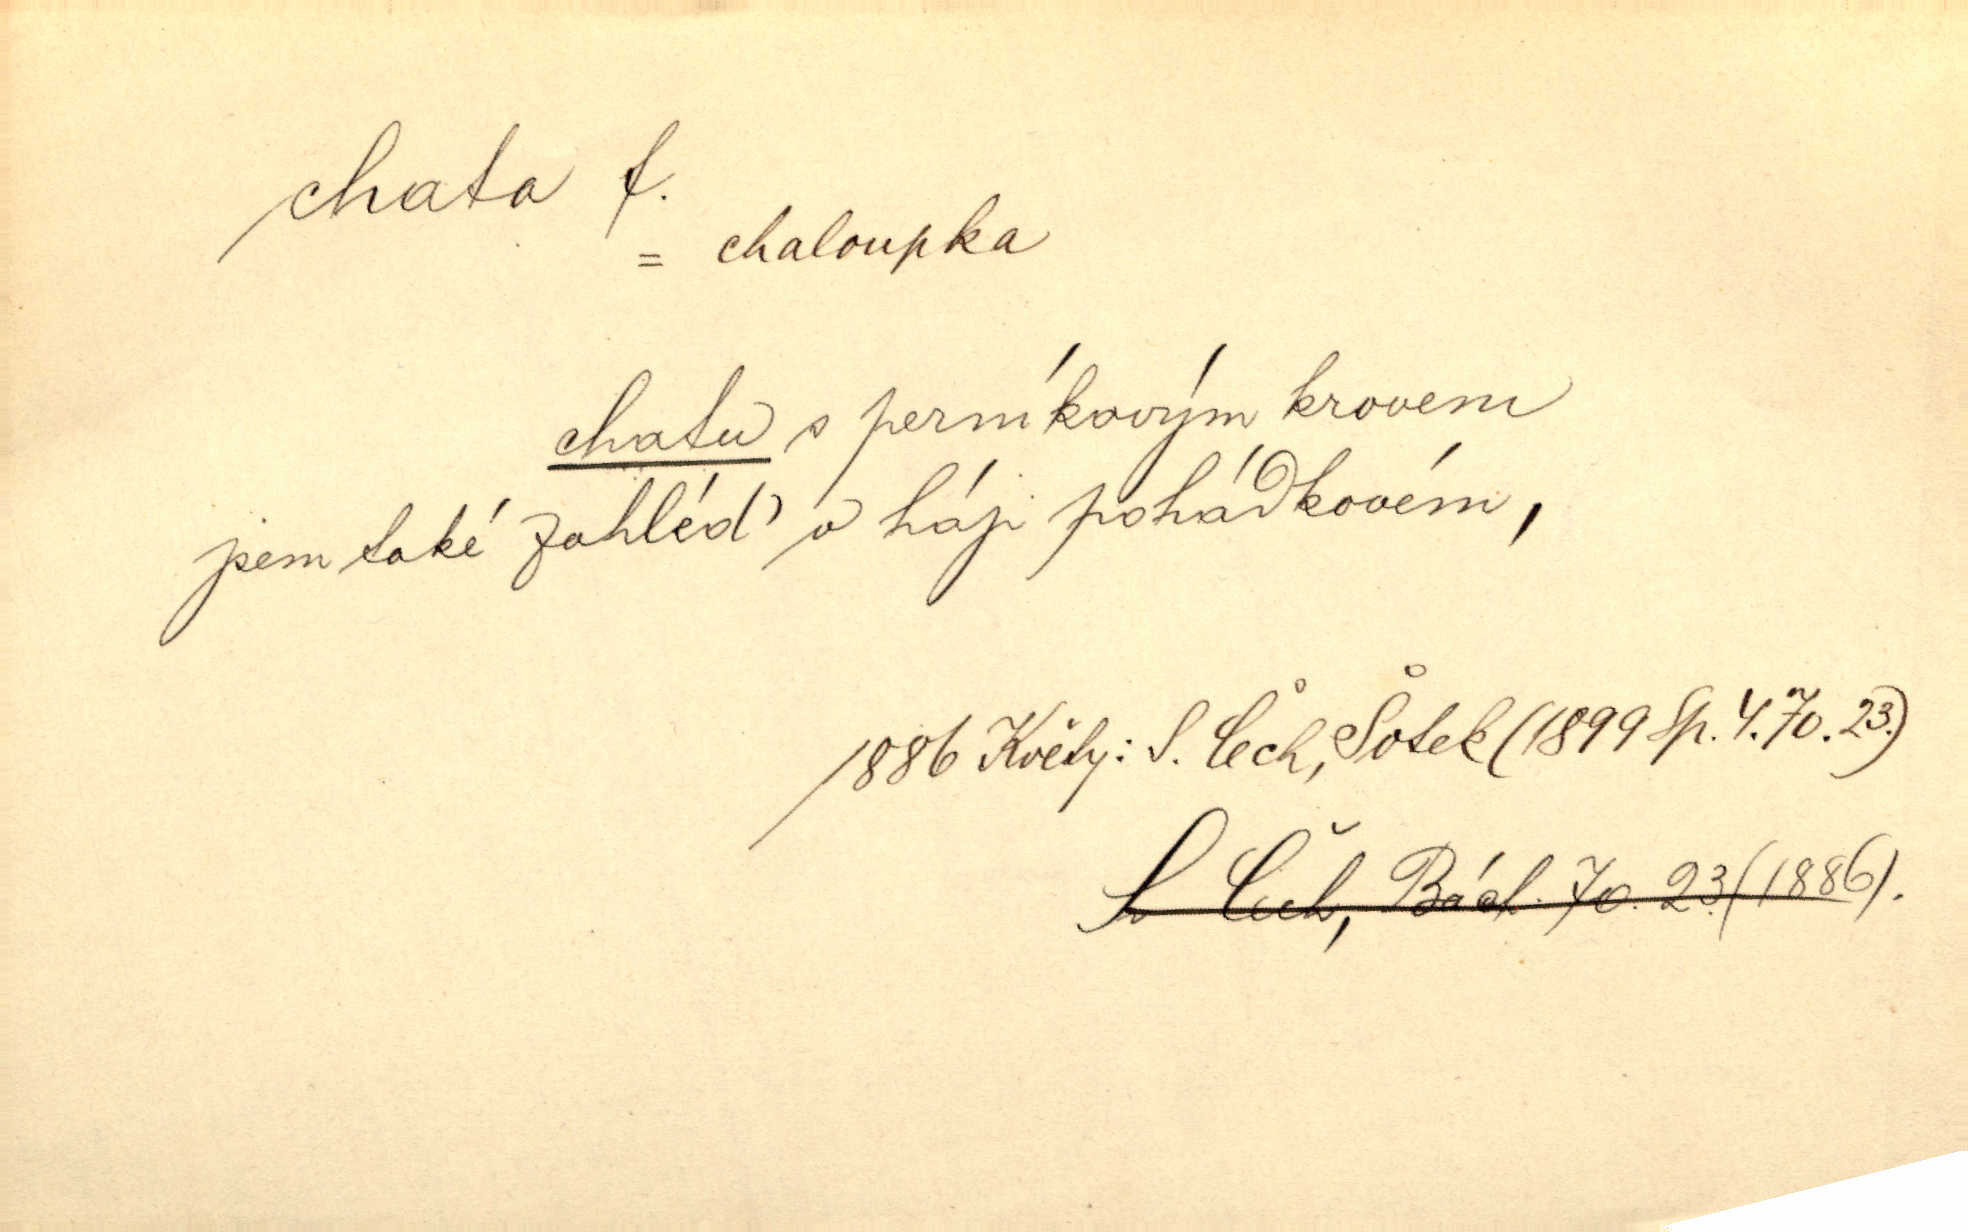 chata f.
= chaloupka
chatu s perníkovým krovem
jsem také zahléd' v háji pohádkovém,
1886 Květy: S. Čech, Šotek (1899 Sp. 4. 70. 23.)
S. Čech, Básl. 70. 23 (1886).